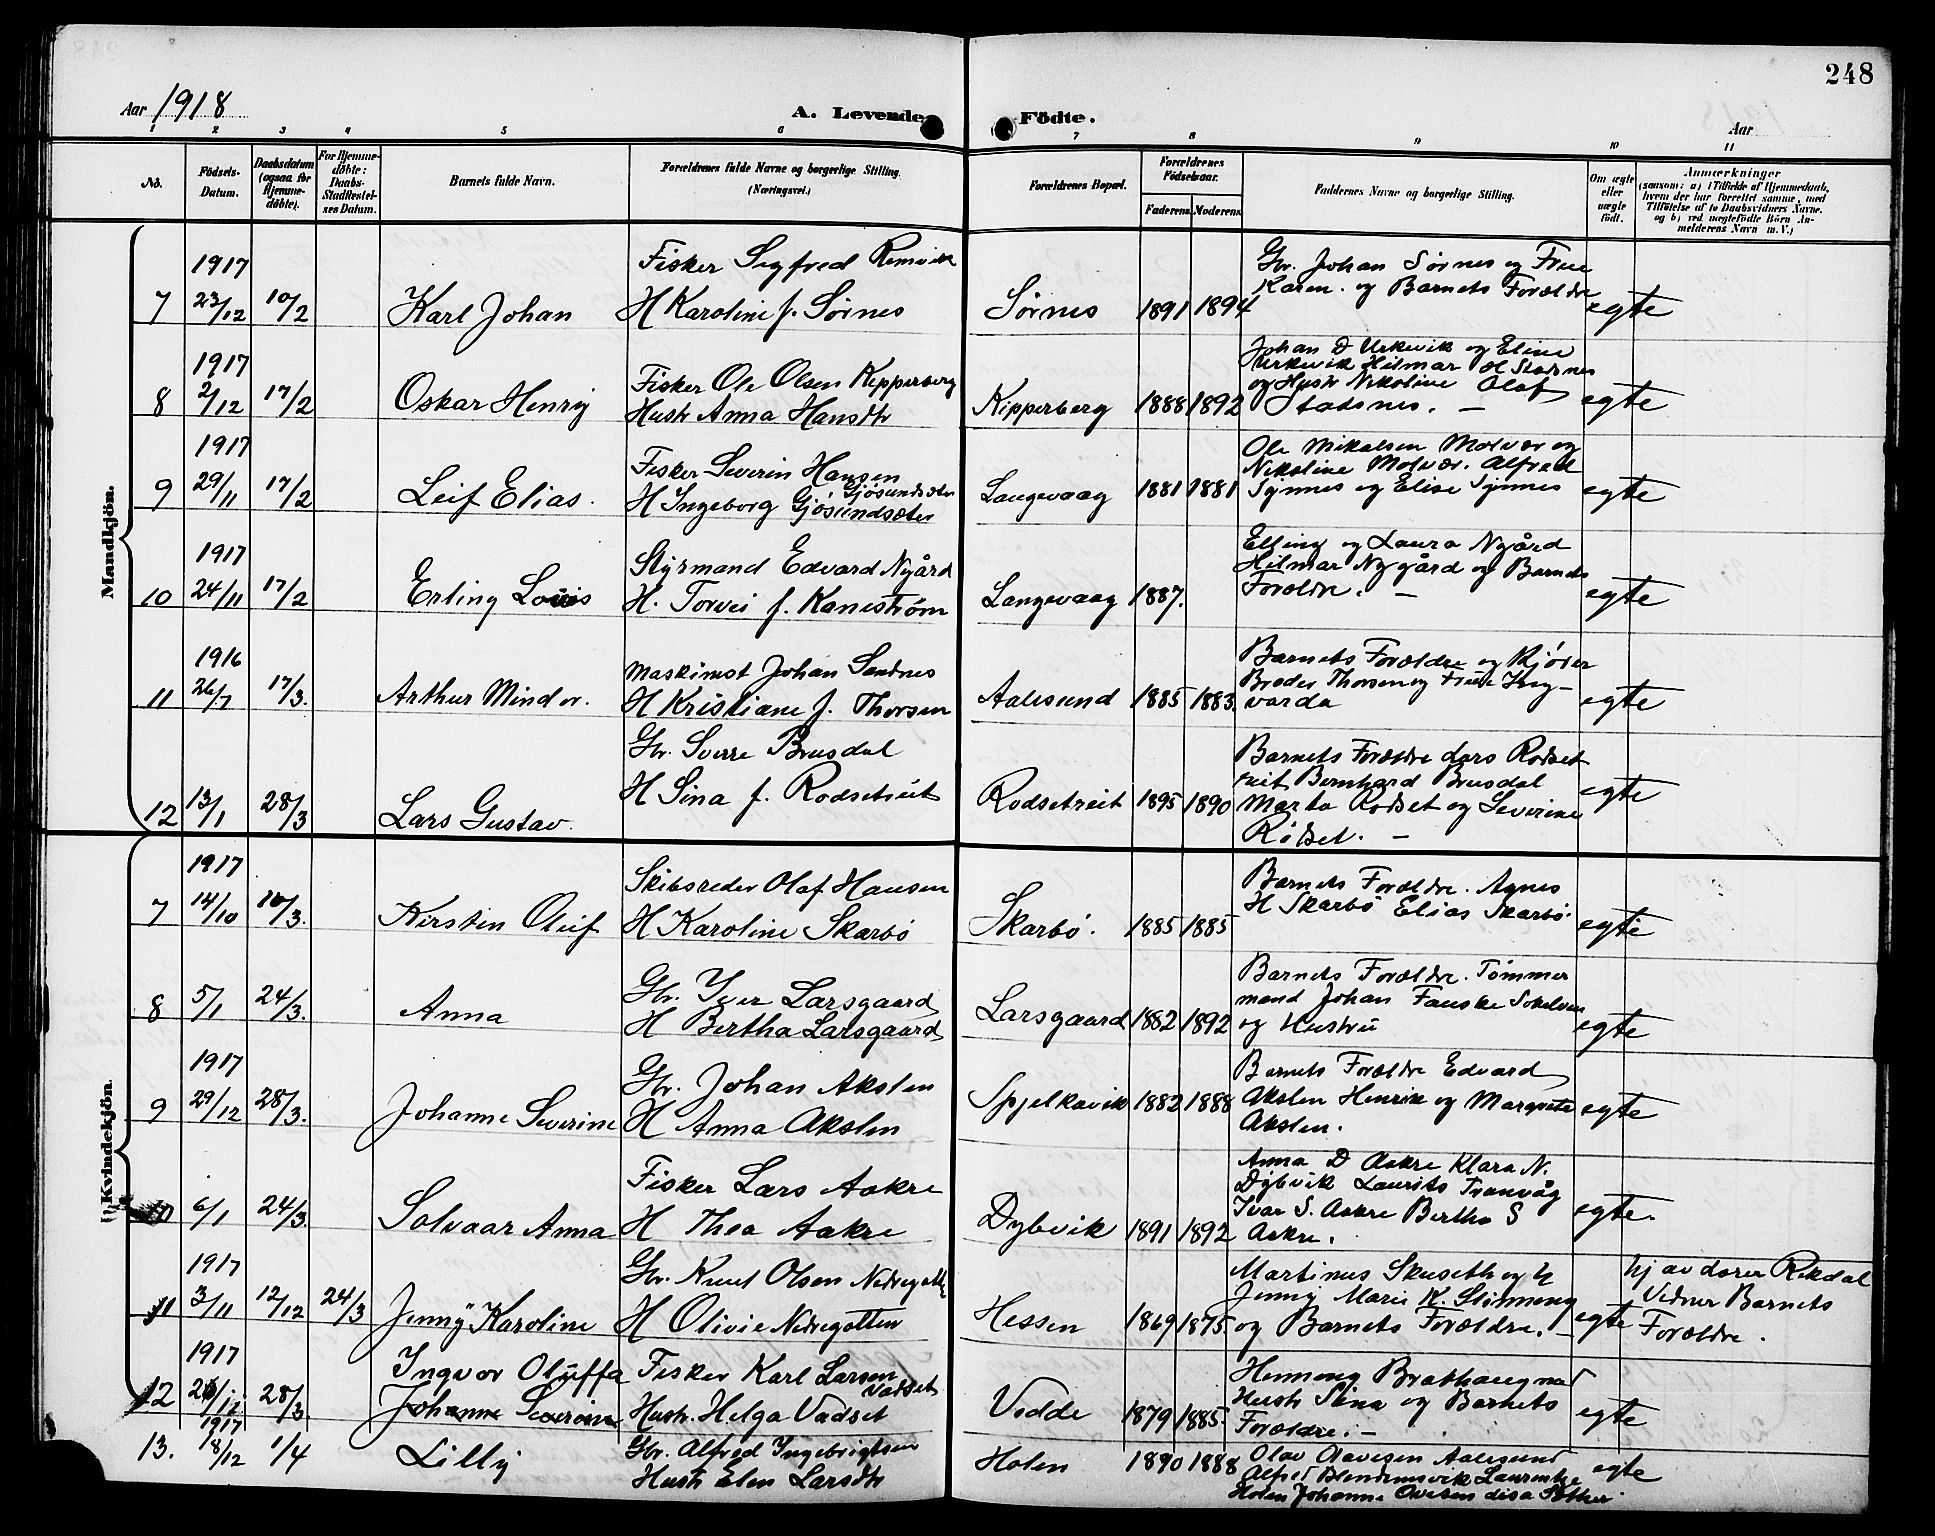 248
Aar 1918
A. Levende Födte.
Aar
1 2 3 4 5 6 7 8 9 10 11
No.
Födsels-Datum.
Daabsdatum (ogsaa for Hjemme-döbte).
For Hjemme-döbte: Daabs-Stadfæstel-ses Datum.
Barnets fulde Navn.
Forældrenes fulde Navne og borgerlige Stilling. (Næringsvei.)
Forældrenes Bopæl.
Forældrenes Födselsaar.
Faderens. Moderens.
Faddernes Navne og borgerlige Stilling.
Om ægte eller uægte födt.
Anmærkninger
(saasom: a) i Tilfælde af Hjemmedaab,
hvem der har forrettet samme, med
Tilföielse af to Daabsvidners Navne,
og b) ved uægtefödte Börn An-
melderens Navn m. V.)
Mandkjön.
1917
7 23/12 10/2 Karl Johan
Fisker Sigfred Remvik
H Karoline f. Sørnes
Sørnes 1891 1894
Gbr. Johan Sørnes og Frue
Karen. og Barnets Forældre
egte
1917
8 2/12 17/2 Oskar Henry
Fisker Ole Olsen Kipperberg
Hustr Anna Hansdtr
Kipperberg 1888 1892
Johan D Urkevik og Eline
Urkevik Hilmar
og Hustr Nikoline Olaf
Stadsnes. —
egte
1917
9 29/11 17/2 Leif Elias.
Fisker Severin Hansen
Gjøsundsæter
H Ingeborg Gjøsundsæter
Langevaag 1881 1881
Ole Mikalsen Molvær og
Nikoline Molvær. Alfred
Synnes og Elise Synnes
egte
1917
10 24/11 17/2 Erling Louis
Styrmand Edvard Nygård
H. Torvei f. Kanestrøm
Langevaag 1887.
Elling og Laura Nygård
Hilmar Nygård og Barnets
Forældre. —
egte
1916
11 26/7 17/3. Arthur Mindor.
Maskinist Johan Sandnes
H Kristiane f. Thorsen
Aalesund 1885 1883.
Barnets Forældre og
Brødr Thorsen og Frue Ing-
varda
egte
12 13/1 28/3 Lars Gustav.
Gbr. Sverre Brusdal
H Sina f. Rodsetreit
Rodsetreit 1895 1890
Barnets Forældre Lars Rodset
reit Bernhard Brusdal
Marta Rodset og Severine
Rødset. —
egte
Kvindekjön.
1917
7 14/10 10/3. Kirsten Oluf
Skibsreder Olaf Hansen
H Karoline Skarbö
Skarbö. 1885 1885
Barnets Forældre. Agnes
H Skarbö Elias Skarbö.
egte
8 5/1 24/3. Anna
Gbr. Iver Larsgaard
H Bertha Larsgaard
Larsgaard 1882 1892
Barnets Forældre. Tømmer
mand Johan Fauske
og Hustru
egte
1917
9 29/12 28/3. Johanne Severine
Gbr. Johan Akslen
H Anna Akslen
Spjelkavik 1882 1888
Barnets Forældre Edvard
Akslen Henrik og Margrete
Akslen.
egte
10 6/1 24/3. Solvaar Anna
Fisker Lars Aakre
H Thea Aakre
Dybvik 1891 1892
Anna D Aakre Klara N.
Dybvik Laurits Tranvåg
Ivar S. Aakre Bertha S
Aakre.
egte.
1917
11 3/11 12/12 24/3 Jenny Karoline
Gbr. Knut Olsen Nedregotten
H Olivie Nedregotten
Hessen 1869 1875.
Martinus Skuseth og H
Jenny Marie K.
og Barnets Forældre. —
egte
hj av Rekdal
Vidner Barnets
Forældre.
1917
12 28/3 Ingvor Oluffa
Johanne Severine
Fisker Karl Larsen
Vadset
Hustr. Helga Vadset
Vedde 1879 1885.
Henning Brathaug med
Hustr Stina og Barnets
Forældre. —
egte
1917
13. 18/12 1/4 Lilly
Gbr. Alfred Ingebrigtsen
Hustr Elen Larsdtr
Holen 1890 1888
Olav Olavesen Aalesund
Alfred Blindheimsvik Laurentse
Holen Johanne Ovesen disa Sæther
egte